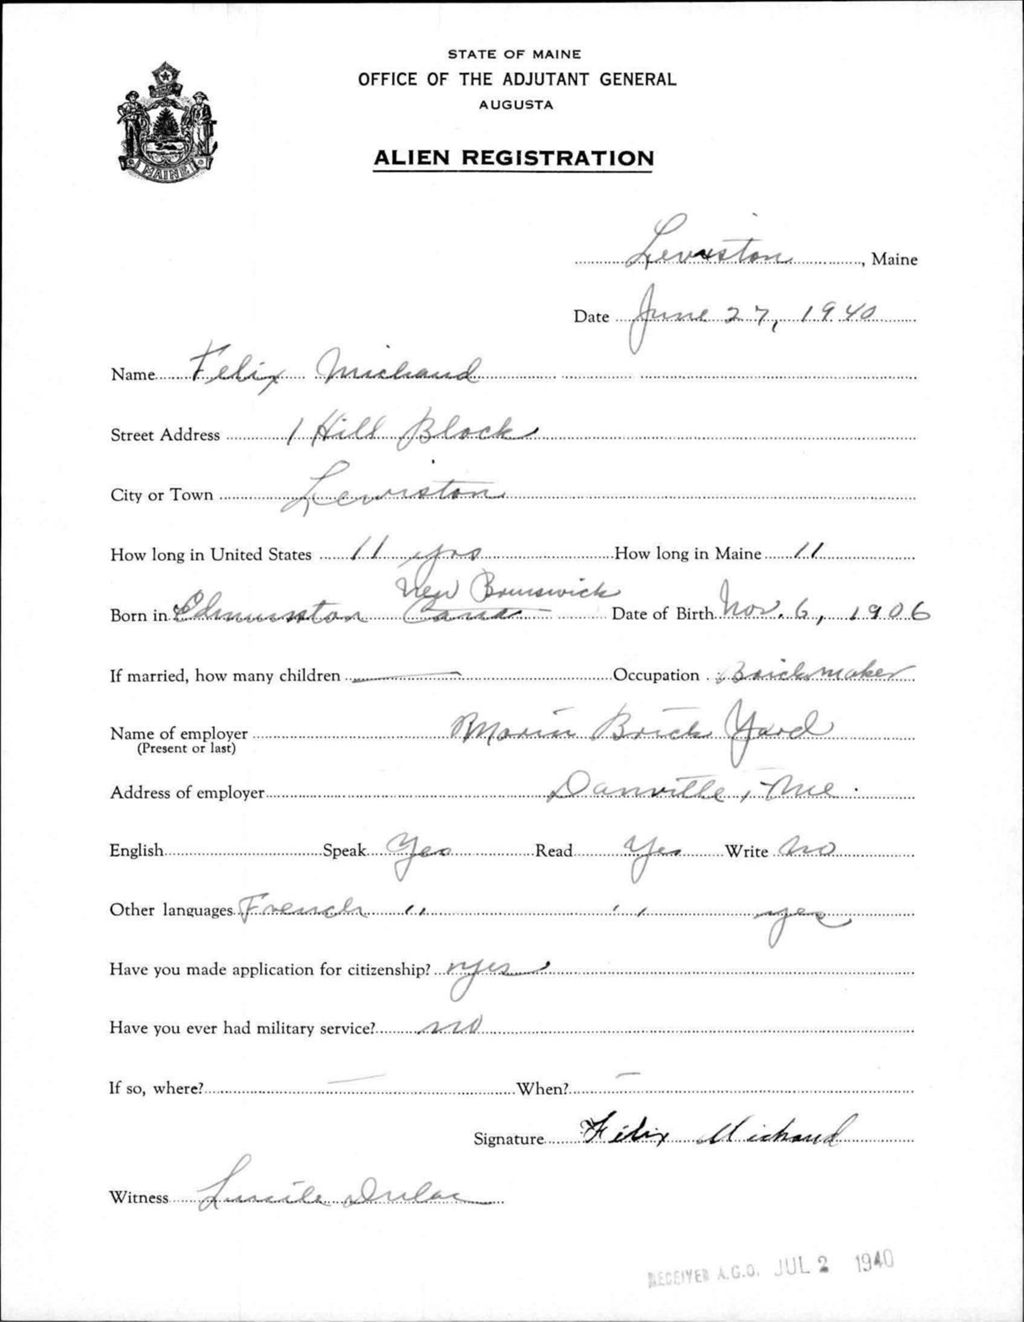 STATE OF MAINE
OFFICE OF THE ADJUTANT GENERAL
AUGUSTA
ALIEN REGISTRATION
MAINE
Lewiston, Maine
Date June 27, 1940
Name Felix Michaud
Street Address 1 Hill Block
City or Town Lewiston
How long in United States 11 yrs How long in Maine 11
New Brunswick
Born in Edmunston Canada Date of Birth Nov. 6, 1906
If married, how many children — Occupation Brickmaker
Name of employer Morin Brick Yard
(Present or last)
Address of employer Danville, Me.
English Speak Yes Read Yes Write No
Other languages French " " yes
Have you made application for citizenship? yes
Have you ever had military service? no
If so, where? — When? —
Signature Felix Michaud
Witness Lucile Dulac
RECEIVED A.G.O. JUL 2 1940